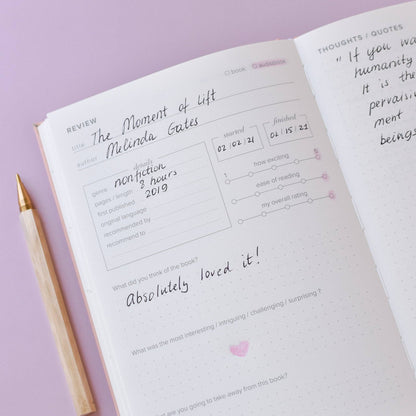 REVIEW
book audiobook
title The Moment of Lift
author Melinda Gates
details
genre nonfiction
pages / length 8 hours
first published 2019
original language
recommended by
recommend to
started
02 02 21
finished
02 15 21
1 how exciting 5
ease of reading
my overall rating
What did you think of the book?
Absolutely loved it!
What was the most interesting / intriguing / challenging / surprising ?
are you going to take away from this book?
THOUGHTS / QUOTES
" If you wa
humanity
It is the
pervasiv
ment
beings